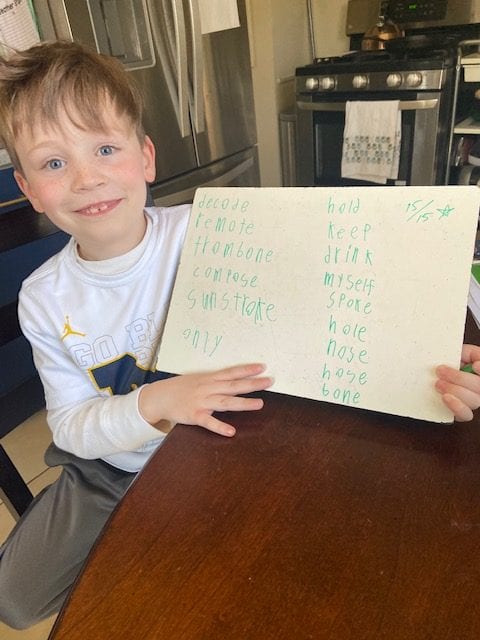 decode
remote
trombone
compose
sunstroke
only
hold
keep
drink
myself
spoke
hole
nose
hose
bone
15/15
GO B